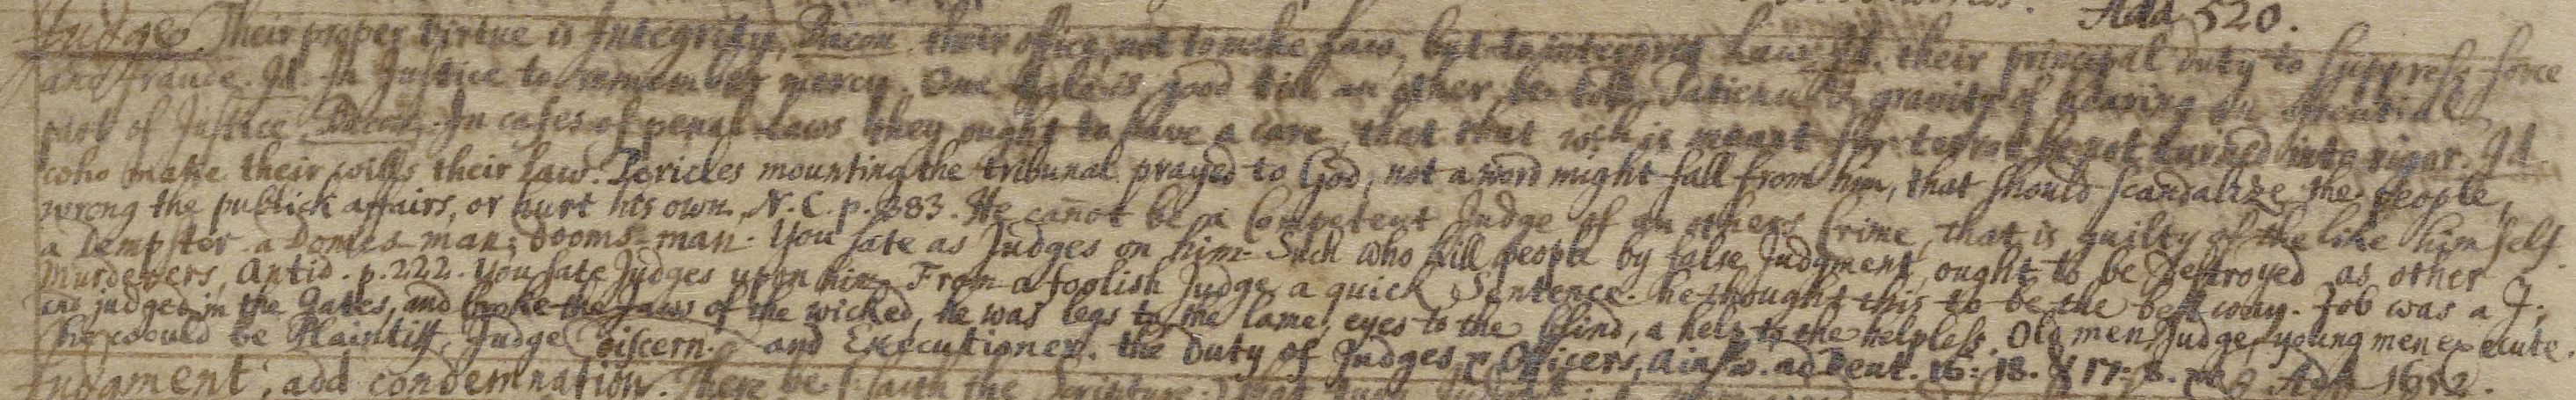 Add 520.
Judge. Their proper virtue is Integrity, Bacon. their office, not to make Law, but to interpret Law. Id. their principal duty to suppress force
and fraude. Id. In Justice to remember mercy. One tale is good till an other be told. Patience & gravity of hearing an essential
part of Justice Bacon. In cases of penal Laws they ought to have a care, that that wch is meant for terror be not turned into rigor. Id.
who make their wills their Law. Pericles mounting the tribunal prayed to God, not a word might fall from him, that should scandalize the people,
wrong the publick affairs, or hurt his own. N. C. p. 383. He cañot be a Competent Judge of an others Crime, that is guilty of the like himself.
a Dempster. a Domes-man, dooms-man. You sate as Judges on him. Such who kill people by false Judgment, ought to be destroyed as other
Murderers, Antid. p. 222. You sate Judges upon him. From a foolish Judge a quick Sentence. he thought this to be the best way. Job was a J.
and judged in the Gates, and broke the Jaws of the wicked, he was legs to the lame, eyes to the blind, a help to the helpless. Old men Judge, young men execute.
he would be Plaintiff, Judge and Executioner. the Duty of Judges, & Officers, Ainsw. ad Deut. 16: 18. & 17: 8. Add 1652.
Discern.
Judgment, add condemnation. There be (saith the Scripture) that turn